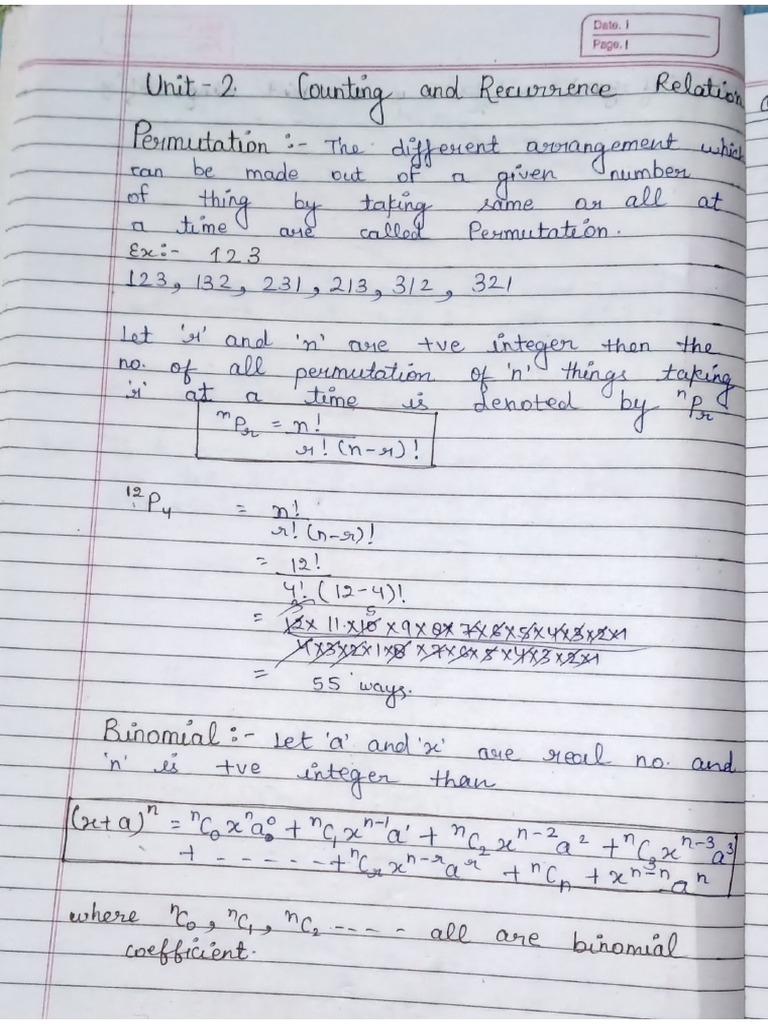 Date. 1
Page. 1
Unit-2. Counting and Recurrence Relation
Permutation :- The different arrangement which
can be made out of a given number
of thing by taking some or all at
a time are called Permutation.
Ex:- 123
123, 132, 231, 213, 312, 321
Let 'r' and 'n' are +ve integer then the
no. of all permutation of 'n' things taking
'r' at a time is denoted by ⁿPr
ⁿPr = n!
r! (n-r)!
¹²P₄ = n!
r! (n-r)!
= 12!
4! (12-4)!
= 12 × 11 × 10 × 9 × 8 × 7 × 6 × 5 × 4 × 3 × 2 × 1
4 × 3 × 2 × 1 × 8 × 7 × 6 × 5 × 4 × 3 × 2 × 1
= 55 ways.
Binomial :- Let 'a' and 'x' are real no. and
'n' is +ve integer than
(x+a)ⁿ = ⁿC₀ xⁿa⁰ + ⁿC₁ xⁿ⁻¹a¹ + ⁿC₂ xⁿ⁻²a² + ⁿC₃ xⁿ⁻³a³
+ - - - - - - + ⁿCr xⁿ⁻ʳaʳ + ⁿCₙ + xⁿ⁻ⁿaⁿ
where ⁿC₀, ⁿC₁, ⁿC₂ ---- all are binomial
coefficient.